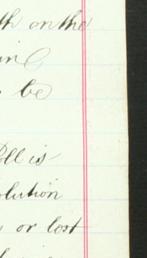 th on the
in
be
Poll is
olution
or lost